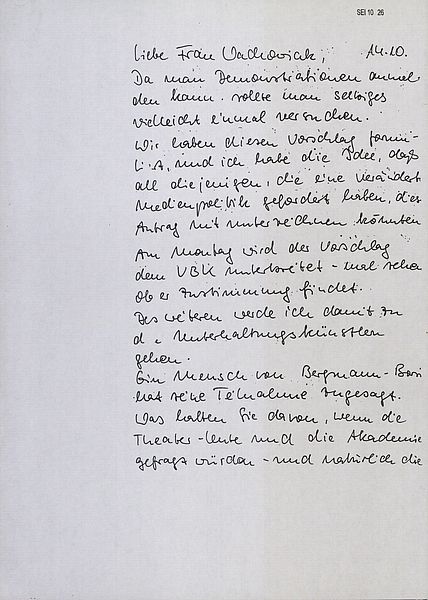 SEI 10 26
Liebe Frau Wachowiak, 14.10.
Da man Demonstrationen anmel-
den kann, sollte man selbiges
vielleicht einmal versuchen.
Wir haben diesen Vorschlag formu-
liert, und ich habe die Idee, daß
all diejenigen, die eine veränderte
Medienpolitik gefordert haben, diesen
Antrag mit unterzeichnen könnten
Am Montag wird der Vorschlag
dem VBK unterbreitet - mal sehen
ob er Zustimmung findet.
Des weiteren werde ich damit zu
d. Unterhaltungskünstlern
gehen.
Ein Mensch von Bergmann-Borsig
hat seine Teilnahme zugesagt.
Was halten Sie davon, wenn die
Theater-leute und die Akademie
gefragt würden - und natürlich die